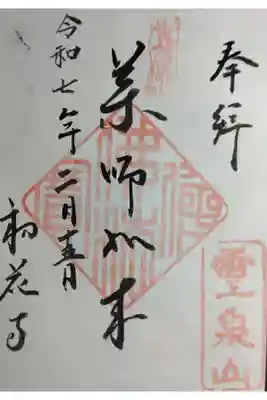 奉拝
霊泉山
薬師如来
令和七年二月十五日